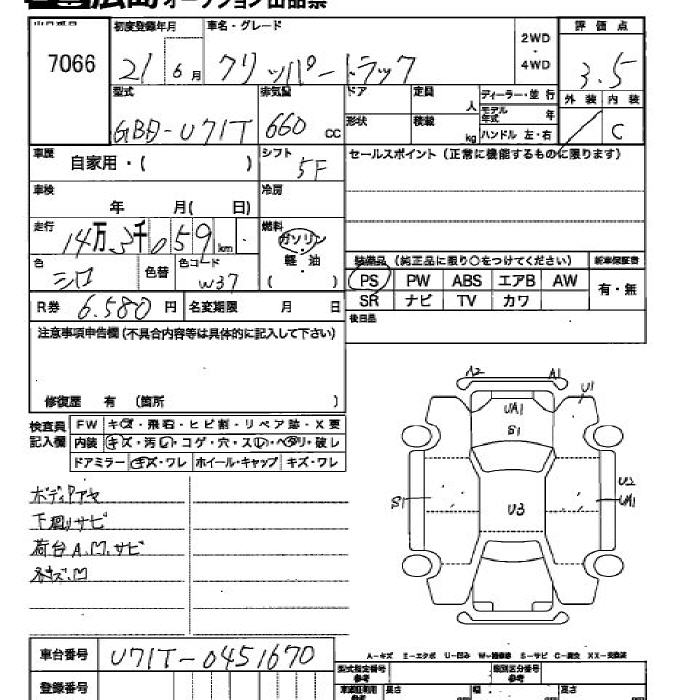 広島オークション出品票
出品番号 7066
初度登録年月 21 6月
車名・グレード クリッパートラック
2WD・4WD
評価点 3.5
型式 GBD-U71T
排気量 660 CC
ドア
形状
定員 人
積載 kg
ディーラー・並行
モデル年式 年
ハンドル 左・右
外装 内装
C
車歴 自家用・( )
シフト 5F
セールスポイント(正常に機能するものに限ります)
車検 年 月( 日)
冷房
走行 14万3千059km
燃料 ガソリン 軽・油 ( )
色 シロ 色替
色コード W37
装備品(純正品に限り○をつけてください) 新車保証書
PS PW ABS エアB AW 有・無
SR ナビ TV カワ
R券 6.580円 名変期限 月 日
後日品
注意事項申告欄(不具合内容等は具体的に記入して下さい)
修復歴 有 (箇所 )
検査員記入欄
FW キズ・飛石・ヒビ割・リペア跡・X要
内装 キズ・汚れ・コゲ・穴・スレ・ヘタリ・破レ
ドアミラー キズ・ワレ ホイール・キャップ キズ・ワレ
A2 A1
U1
UA1
S1
S1
U3
U2
UA1
ボディアセ
下廻りサビ
荷台A.凹.サビ
A-キズ E-エクボ U-凹み W-補修跡 S-サビ C-腐食 XX-交換済
車台番号 U71T-0451670
登録番号
型式指定番号 参考
類別区分番号 参考
長さ 幅 高さ